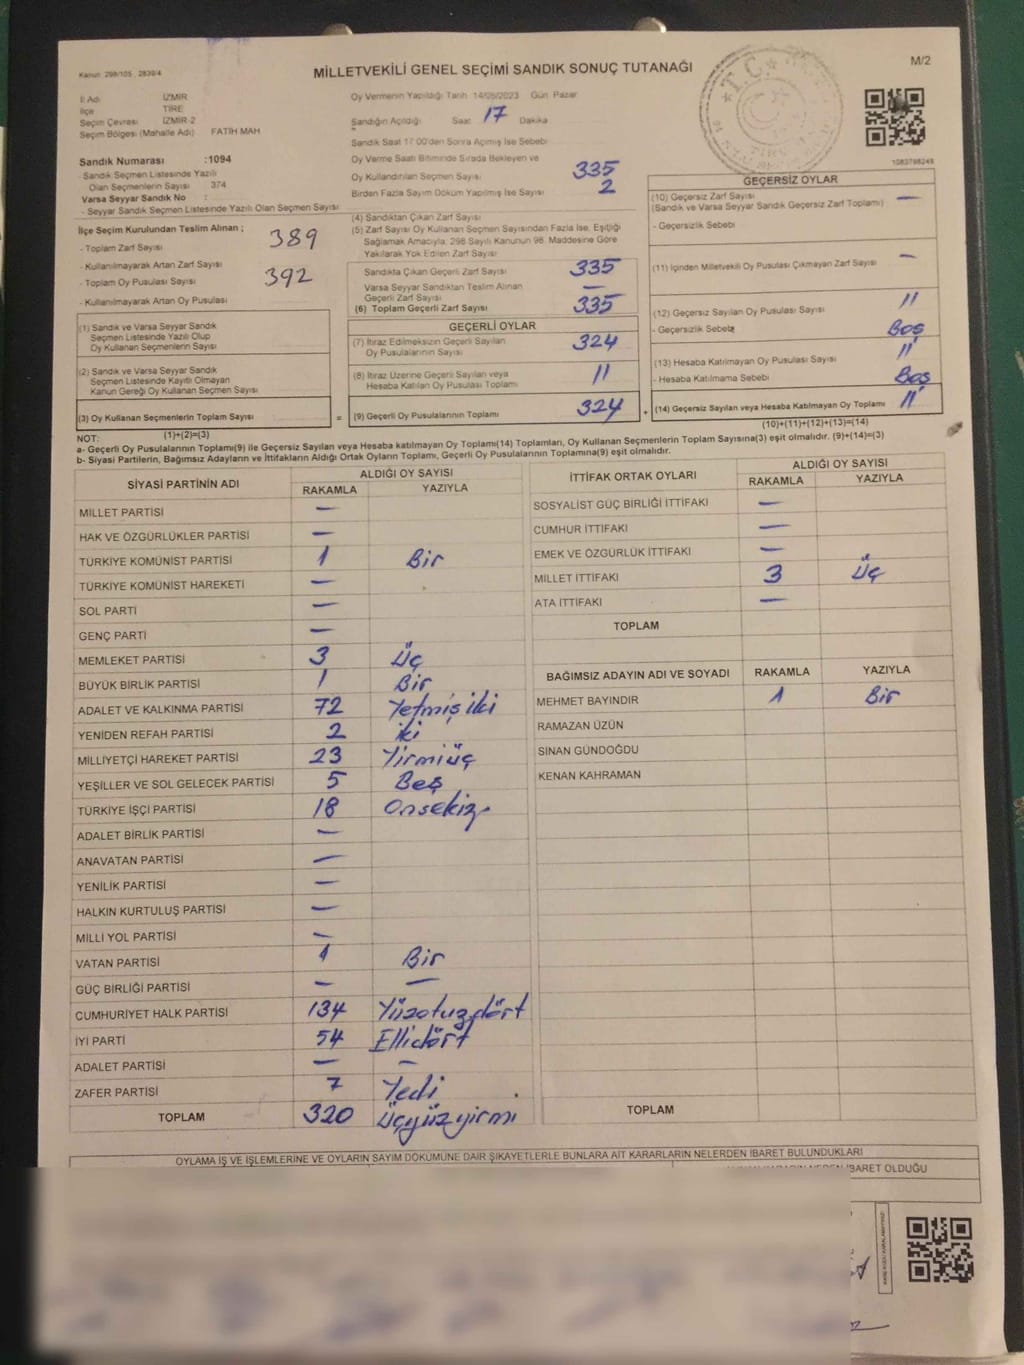 Kanun 298/105, 2839/4
MİLLETVEKİLİ GENEL SEÇİMİ SANDIK SONUÇ TUTANAĞI
M/2
İl Adı İZMİR
İlçe TİRE
Seçim Çevresi İZMİR-2
Seçim Bölgesi (Mahalle Adı) FATİH MAH
Sandık Numarası :1094
- Sandık Seçmen Listesinde Yazılı
Olan Seçmenlerin Sayısı : 374
Varsa Seyyar Sandık No :
- Seyyar Sandık Seçmen Listesinde Yazılı Olan Seçmen Sayısı
İlçe Seçim Kurulundan Teslim Alınan ;
- Toplam Zarf Sayısı 389
- Kullanılmayarak Artan Zarf Sayısı
- Toplam Oy Pusulası Sayısı 392
- Kullanılmayarak Artan Oy Pusulası
(1) Sandık ve Varsa Seyyar Sandık
Seçmen Listesinde Yazılı Olup
Oy Kullanan Seçmenlerin Sayısı
(2) Sandık ve Varsa Seyyar Sandık
Seçmen Listesinde Kayıtlı Olmayan
Kanun Gereği Oy Kullanan Seçmen Sayısı
(3) Oy Kullanan Seçmenlerin Toplam Sayısı =
(1)+(2)=(3)
Oy Vermenin Yapıldığı Tarih 14/05/2023 Gün Pazar
Sandığın Açıldığı Saat 17 Dakika
Sandık Saat 17:00'den Sonra Açılmış İse Sebebi
Oy Verme Saati Bitiminde Sırada Bekleyen ve
Oy Kullandırılan Seçmen Sayısı 335
Birden Fazla Sayım Döküm Yapılmış İse Sayısı 2
(4) Sandıktan Çıkan Zarf Sayısı
(5) Zarf Sayısı Oy Kullanan Seçmen Sayısından Fazla İse, Eşitliği
Sağlamak Amacıyla, 298 Sayılı Kanunun 98. Maddesine Göre
Yakılarak Yok Edilen Zarf Sayısı
Sandıkta Çıkan Geçerli Zarf Sayısı 335
Varsa Seyyar Sandıktan Teslim Alınan
Geçerli Zarf Sayısı —
(6) Toplam Geçerli Zarf Sayısı 335
GEÇERLİ OYLAR
(7) İtiraz Edilmeksizin Geçerli Sayılan
Oy Pusulalarının Sayısı 324
(8) İtiraz Üzerine Geçerli Sayılan veya
Hesaba Katılan Oy Pusulası Toplamı 11
(9) Geçerli Oy Pusulalarının Toplamı 324 +
1083798248
GEÇERSİZ OYLAR
(10) Geçersiz Zarf Sayısı —
(Sandık ve Varsa Seyyar Sandık Geçersiz Zarf Toplamı)
- Geçersizlik Sebebi
(11) İçinden Milletvekili Oy Pusulası Çıkmayan Zarf Sayısı —
(12) Geçersiz Sayılan Oy Pusulası Sayısı 11
- Geçersizlik Sebebi Boş
(13) Hesaba Katılmayan Oy Pusulası Sayısı 11
- Hesaba Katılmama Sebebi Boş
(14) Geçersiz Sayılan veya Hesaba Katılmayan Oy Toplamı 11
(10)+(11)+(12)+(13)=(14)
NOT:
a- Geçerli Oy Pusulalarının Toplamı(9) ile Geçersiz Sayılan veya Hesaba katılmayan Oy Toplamı(14) Toplamları, Oy Kullanan Seçmenlerin Toplam Sayısına(3) eşit olmalıdır. (9)+(14)=(3)
b- Siyasi Partilerin, Bağımsız Adayların ve İttifakların Aldığı Ortak Oyların Toplamı, Geçerli Oy Pusulalarının Toplamına(9) eşit olmalıdır.
SİYASİ PARTİNİN ADI ALDIĞI OY SAYISI
RAKAMLA YAZIYLA
MİLLET PARTİSİ —
HAK VE ÖZGÜRLÜKLER PARTİSİ —
TÜRKİYE KOMÜNİST PARTİSİ 1 Bir
TÜRKİYE KOMÜNİST HAREKETİ —
SOL PARTİ —
GENÇ PARTİ —
MEMLEKET PARTİSİ 3 Üç
BÜYÜK BİRLİK PARTİSİ 1 Bir
ADALET VE KALKINMA PARTİSİ 72 Yetmiş iki
YENİDEN REFAH PARTİSİ 2 iki
MİLLİYETÇİ HAREKET PARTİSİ 23 Yirmiüç
YEŞİLLER VE SOL GELECEK PARTİSİ 5 Beş
TÜRKİYE İŞÇİ PARTİSİ 18 Onsekiz
ADALET BİRLİK PARTİSİ —
ANAVATAN PARTİSİ —
YENİLİK PARTİSİ —
HALKIN KURTULUŞ PARTİSİ —
MİLLİ YOL PARTİSİ —
VATAN PARTİSİ 1 Bir
GÜÇ BİRLİĞİ PARTİSİ — —
CUMHURİYET HALK PARTİSİ 134 Yüzotuzdört
İYİ PARTİ 54 Ellidört
ADALET PARTİSİ — —
ZAFER PARTİSİ 7 Yedi
TOPLAM 320 Üçyüzyirmi
İTTİFAK ORTAK OYLARI ALDIĞI OY SAYISI
RAKAMLA YAZIYLA
SOSYALİST GÜÇ BİRLİĞİ İTTİFAKI —
CUMHUR İTTİFAKI —
EMEK VE ÖZGÜRLÜK İTTİFAKI —
MİLLET İTTİFAKI 3 Üç
ATA İTTİFAKI —
TOPLAM
BAĞIMSIZ ADAYIN ADI VE SOYADI RAKAMLA YAZIYLA
MEHMET BAYINDIR 1 Bir
RAMAZAN ÜZÜN
SİNAN GÜNDOĞDU
KENAN KAHRAMAN
TOPLAM
OYLAMA İŞ VE İŞLEMLERİNE VE OYLARIN SAYIM DÖKÜMÜNE DAİR ŞİKAYETLERLE BUNLARA AİT KARARLARIN NELERDEN İBARET BULUNDUKLARI
İBARET OLDUĞU